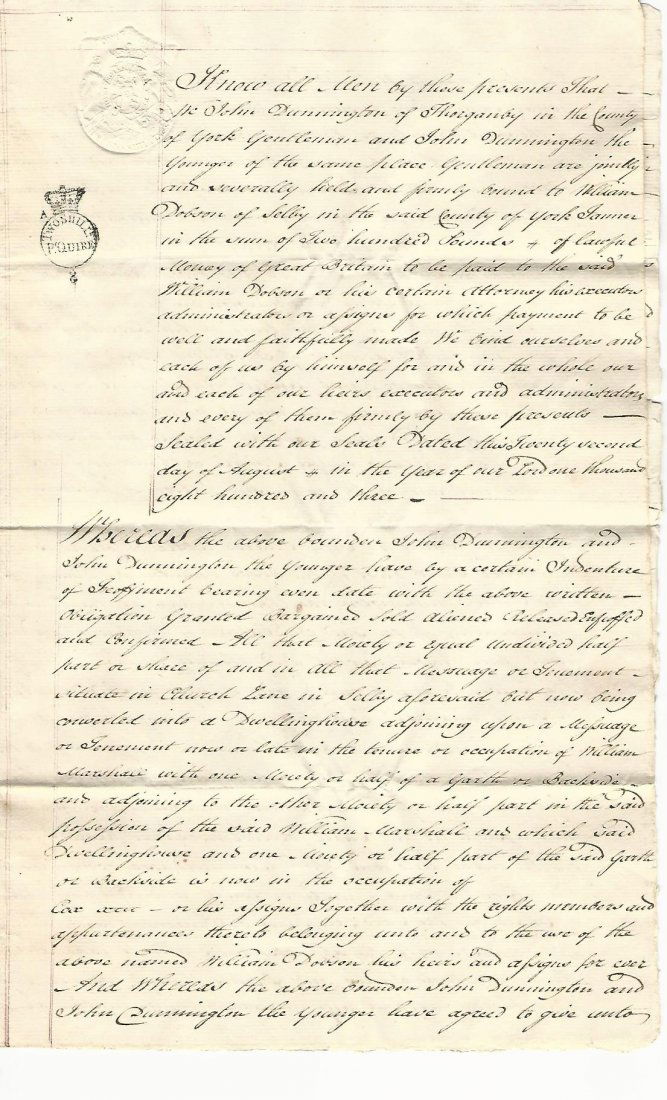 Know all Men by these presents That —
We John Dunnington of Thorganby in the County
of York Gentleman and John Dunnington the
Younger of the same place Gentleman are jointly
and severally held and firmly bound to William
Dobson of Selby in the said County of York Tanner
in the sum of Two hundred Pounds of lawful
Money of Great Britain to be paid to the said
William Dobson or his certain Attorney his executors
administrators or assigns for which payment to be
well and faithfully made We bind ourselves and
each of us by himself for and in the whole our
and each of our heirs executors and administrators
and every of them firmly by these presents —
Sealed with our Seals Dated this Twenty second
day of August in the Year of our Lord one thousand
eight hundred and three —
A
TWO SHILLS
PR QUIRE
Whereas the above bounden John Dunnington and
John Dunnington the Younger have by a certain Indenture
of Feoffment bearing even date with the above written —
Obligation Granted Bargained Sold Aliened Released Enfeoffed
and Confirmed All that Moiety or equal undivided half
part or share of and in all that Messuage or Tenement —
situate in Church Lane in Selby aforesaid but now being
converted into a Dwellinghouse adjoining upon a Messuage
or Tenement now or late in the tenure or occupation of William
Marshall with one Moiety or half of a Garth or Backside
and adjoining to the other Moiety or half part in the said
possession of the said William Marshall and which said
Dwellinghouse and one Moiety or half part of the said Garth
or Backside is now in the occupation of
— or his assigns Together with the rights members and
appurtenances thereto belonging unto and to the use of the
above named William Dobson his heirs and assigns for ever
And Whereas the above bounden John Dunnington and
John Dunnington the Younger have agreed to give unto